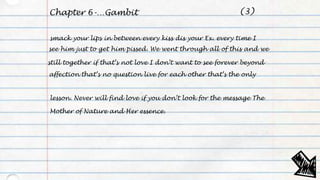 Chapter 6-...Gambit (3)
smack your lips in between every kiss dis your Ex. every time I
see him just to get him pissed. We went through all of this and we
still together if that's not love I don't want to see forever beyond
affection that's no question live for each other that's the only
lesson. Never will find love if you don't look for the message The
Mother of Nature and Her essence.